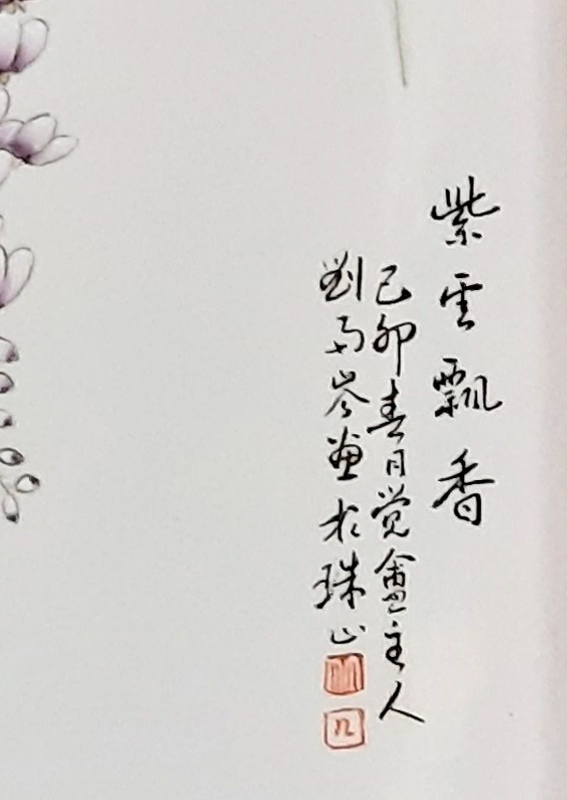 紫雲飄香
己卯春日觉盦主人
劉雨岑畫於珠山